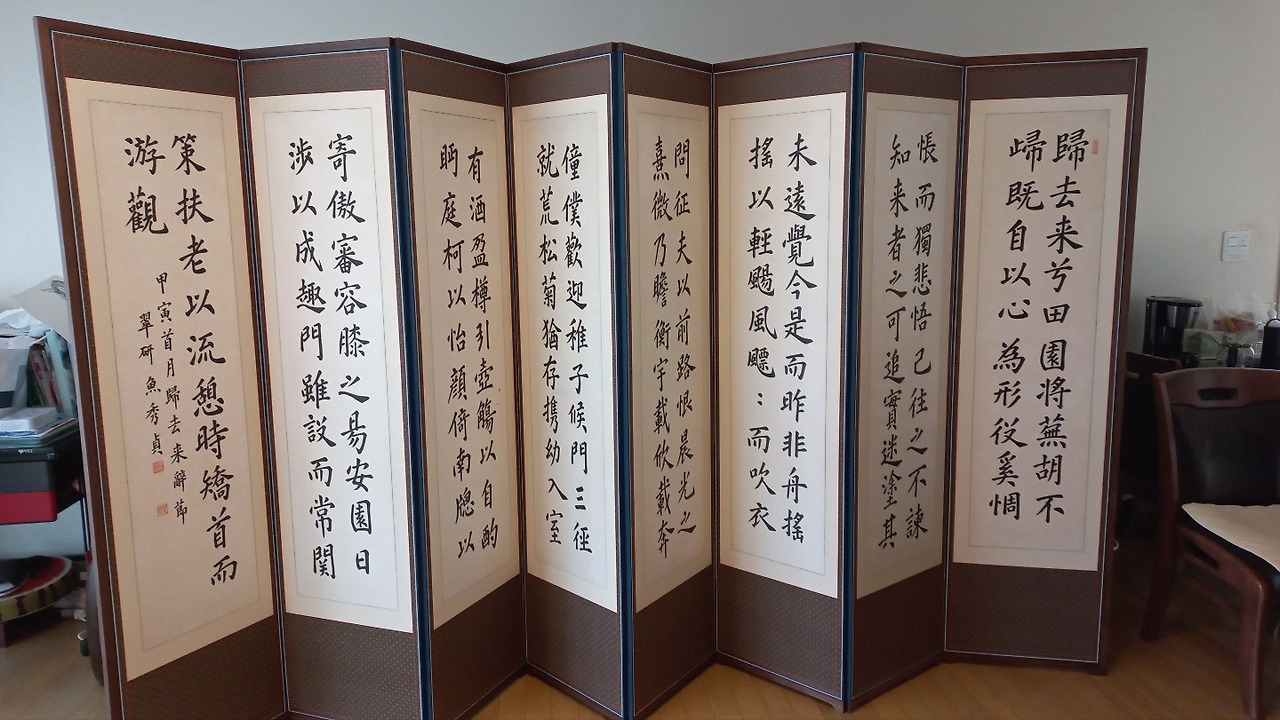 歸去来兮田園将蕪胡不
㱕既自以心為形役奚惆
悵而獨悲悟已往之不諫
知来者之可追實迷塗其
未遠覺今是而昨非舟搖
搖以輕颺風飄：而吹衣
問征夫以前路恨晨光之
熹微乃瞻衡宇載欣載奔
僮僕歡迎稚子候門三徑
就荒松菊猶存携幼入室
有酒盈樽引壺觴以自酌
眄庭柯以怡顔倚南牕以
寄傲審容膝之易安園日
涉以成趣門雖設而常関
策扶老以流憩時矯首而
游觀
甲寅首月歸去来辭節
翠研魚秀貞